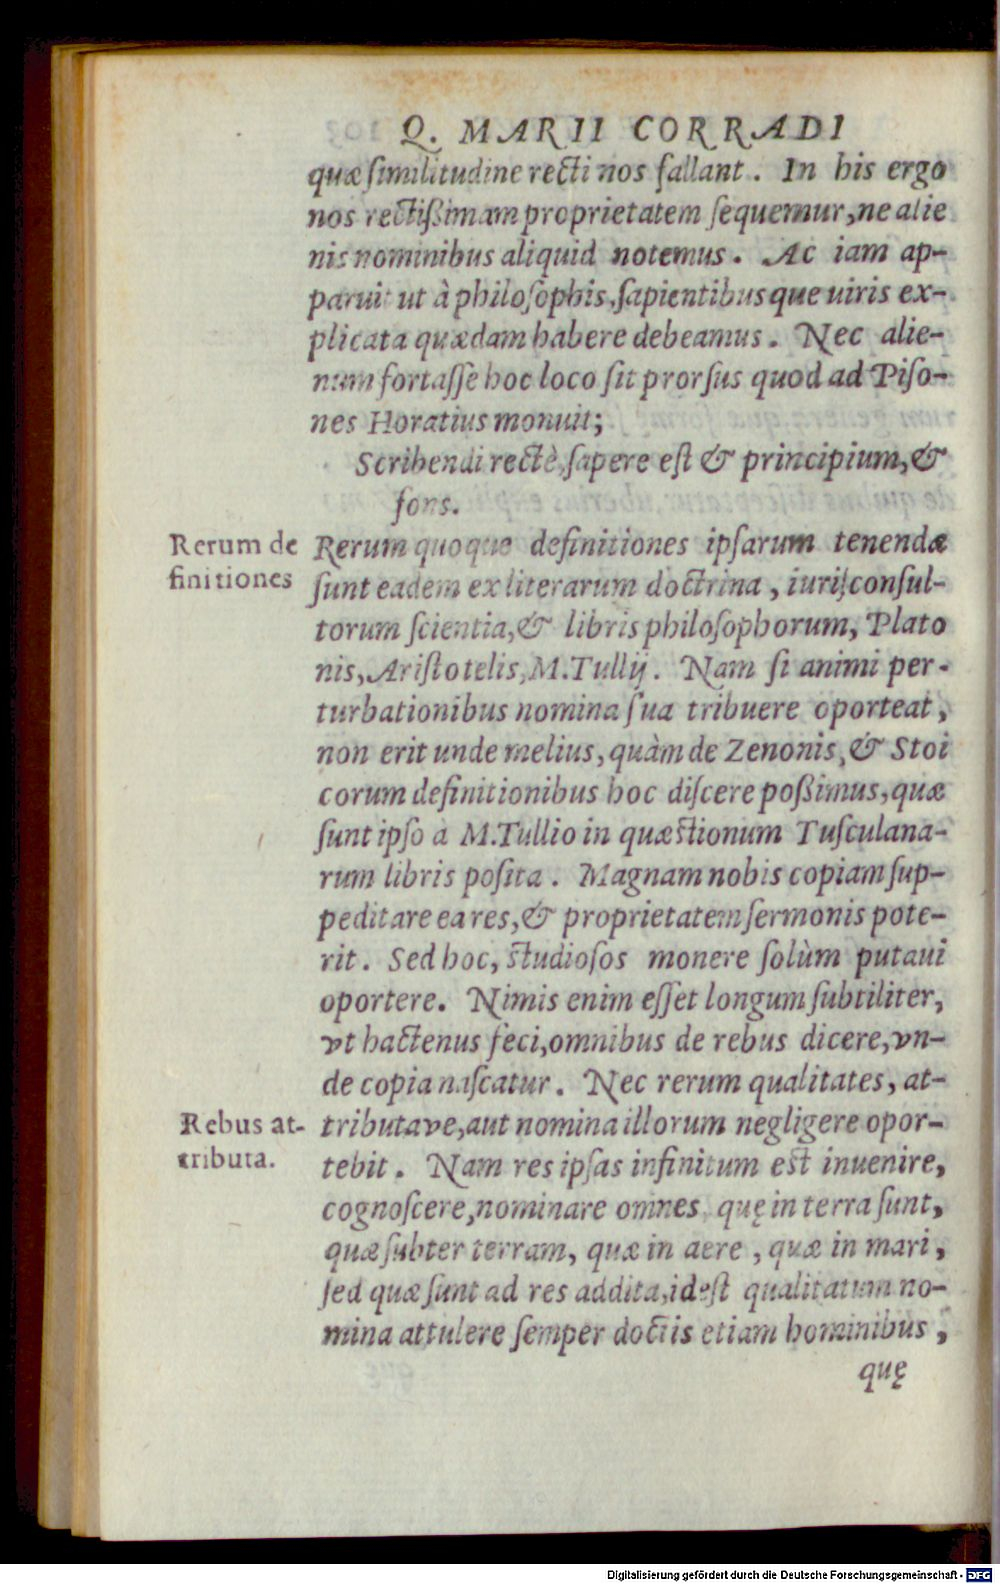 Q. MARII CORRADI
quæ ſimilitudine recti nos fallant. In his ergo
nos rectißimam proprietatem ſequemur, ne alie
nis nominibus aliquid notemus. Ac iam ap-
paruit ut à philoſophis, ſapientibusque uiris ex-
plicata quædam habere debeamus. Nec alie-
num fortaſſe hoc loco ſit prorſus quod ad Piſo-
nes Horatius monuit;
Scribendi rectè, ſapere eſt & principium, &
fons.
Rerum de
finitiones
Rerum quoque definitiones ipſarum tenendæ
ſunt eadem ex literarum doctrina, iuriſconſul-
torum ſcientia, & libris philoſophorum, Plato
nis, Ariſtotelis, M. Tullij. Nam ſi animi per-
turbationibus nomina ſua tribuere oporteat,
non erit unde melius, quàm de Zenonis, & Stoi
corum definitionibus hoc diſcere poßimus, quæ
ſunt ipſo a M. Tullio in quæſtionum Tuſculana-
rum libris poſita. Magnam nobis copiam ſup-
peditare ea res, & proprietatem ſermonis pote-
rit. Sed hoc, ſtudioſos monere ſolùm putaui
oportere. Nimis enim eſſet longum ſubtiliter,
vt hactenus feci, omnibus de rebus dicere, vn-
de copia naſcatur. Nec rerum qualitates, at-
Rebus at-
tributa.
tributave, aut nomina illorum negligere opor-
tebit. Nam res ipſas infinitum eſt inuenire,
cognoſcere, nominare omnes, quę in terra ſunt,
quæ ſubter terram, quæ in aere, quæ in mari,
ſed quæ ſunt ad res addita, id eſt qualitatum no-
mina attulere ſemper doctis etiam hominibus,
quę
Digitalisierung gefördert durch die Deutsche Forschungsgemeinschaft - DFG